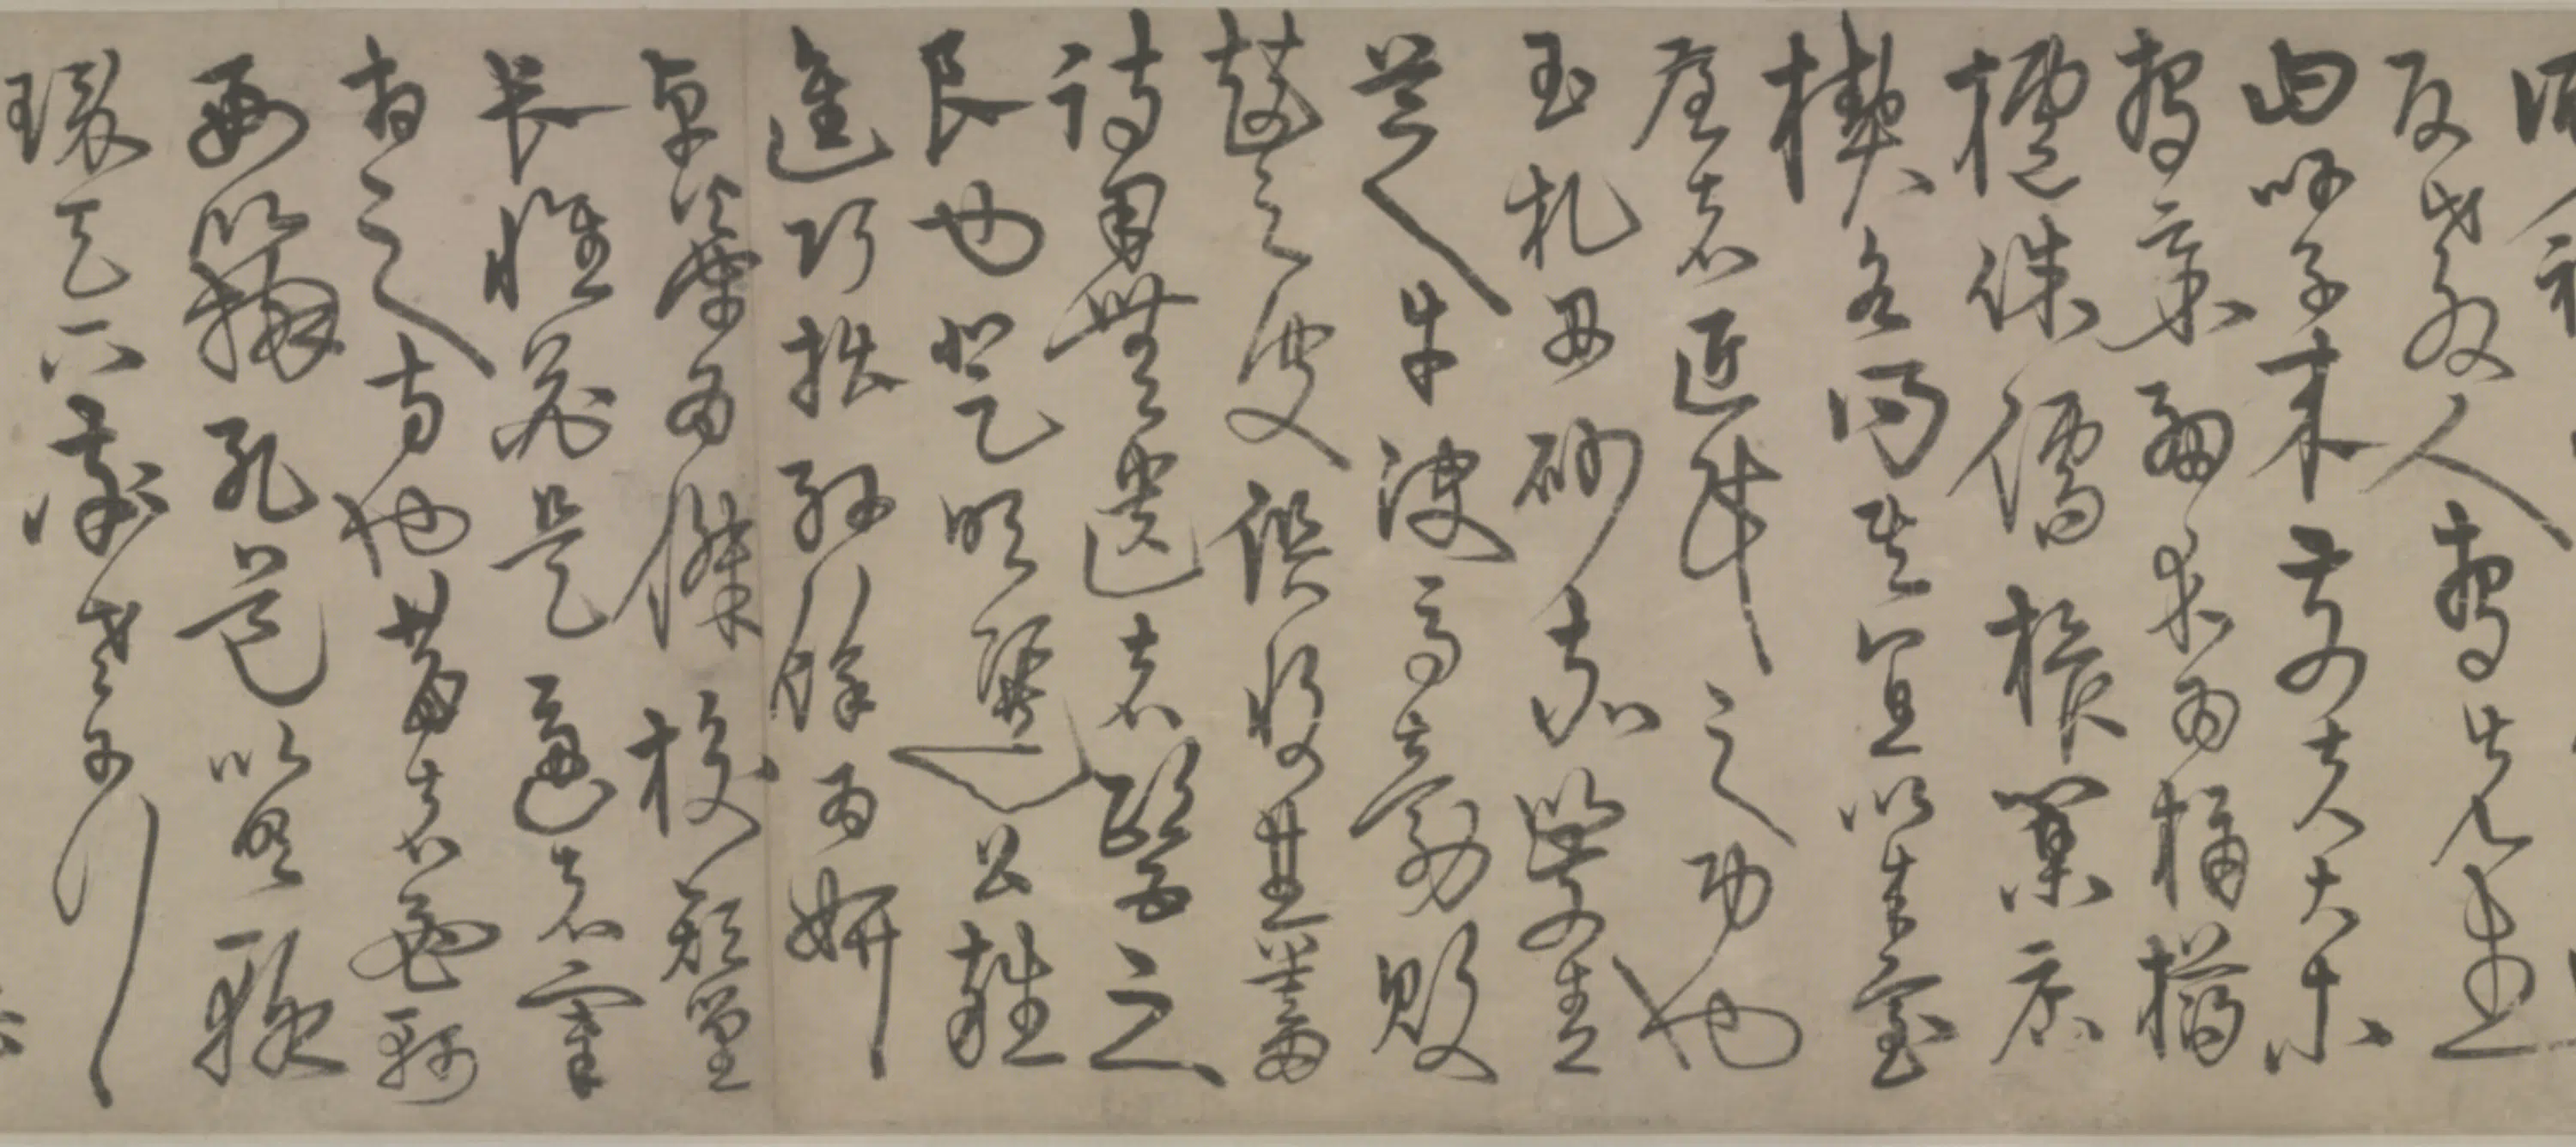 反教人為先生
曰吁子來前夫大木
為杗細木為桷欂
櫨侏儒椳闑扂
楔各得其宜以成室
屋者匠氏之功也
玉札丹砂赤箭青
芝牛溲馬勃敗
鼓之皮俱收並蓄
待用無遺者醫師之
良也登明選公雜
進巧拙紆餘為妍
卓犖為傑校短量
長惟器是適者宰
相之方也昔者孟軻
好辯孔道以明轍
環天下卒老于行